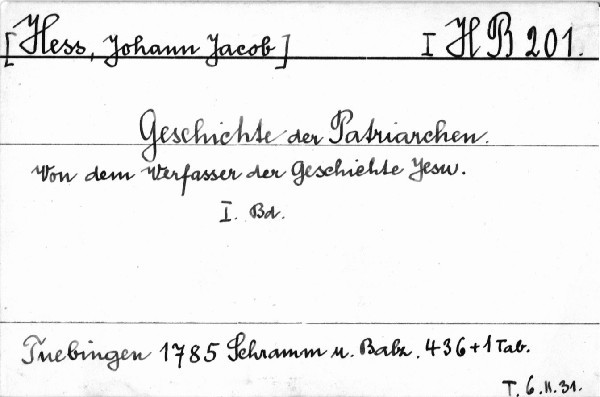 [Hess, Johann Jacob] I HB 201.
Geschichte der Patriarchen.
Von dem Verfasser der Geschichte Jesu.
I. Bd.
Tuebingen 1785 Schramm u. Balz. 436+1 Tab.
T. 6.II.31.